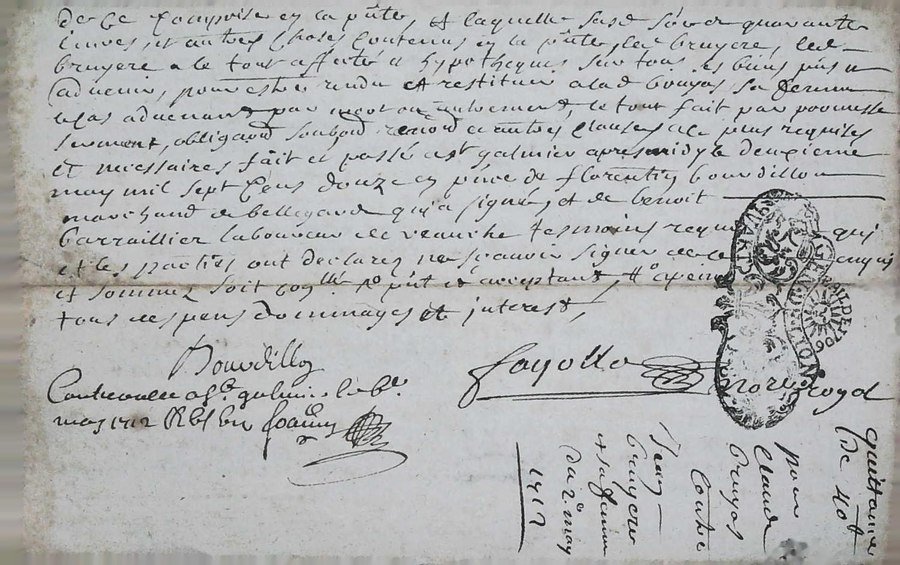 de ce comprise en la pnte, et laquelle susd. so.e de quarante
livres, et autres choses contenus en la pnte, led bruyere, led
bruyere a le tout affecté et hypothequé sur tous ses biens pnts et
advenir, pour estre rendu et restitué a lad bouyas sa femme
le cas advenant par mort ou autrement, le tout fait par promesse
serment, obligaõn soubõn renoõn et autres clauses a ce plus requises
et necessaires fait et passé a st galmier apres midy le deuxieme
may mil sept cens douze en pnce de florentin bourdillon
marchand de bellegarde qui a signé, et de benoit
barraillier laboureur de veauche tesmoins requis qui
et les parties ont declaré ne scavoir signer de ce enquis
et sommez soit
tous despens dommages et interest,
Bourdillon
Controuelle a st galmier le 8e
may 1712 Rbt
fayolle
Nore Royal
GEN DE LYON
quittance
de 40t
pour
claude
bruyas
contre
Jean
bruyere
et sa femme
du 2 may
1712